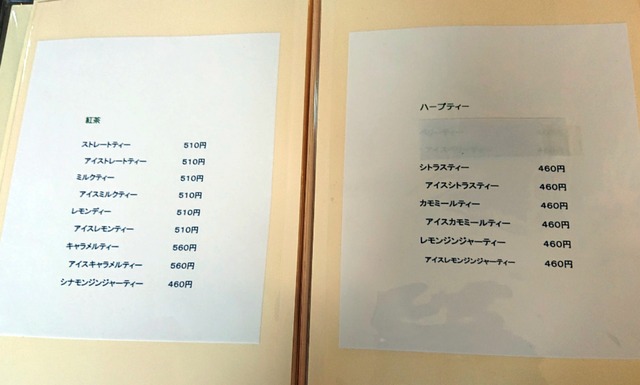 紅茶
ストレートティー 510円
アイストレートティー 510円
ミルクティー 510円
アイスミルクティー 510円
レモンディー 510円
アイスレモンティー 510円
キャラメルティー 560円
アイスキャラメルティー 560円
シナモンジンジャーティー 460円
ハーブティー
シトラスティー 460円
アイスシトラスティー 460円
カモミールティー 460円
アイスカモミールティー 460円
レモンジンジャーティー 460円
アイスレモンジンジャーティー 460円